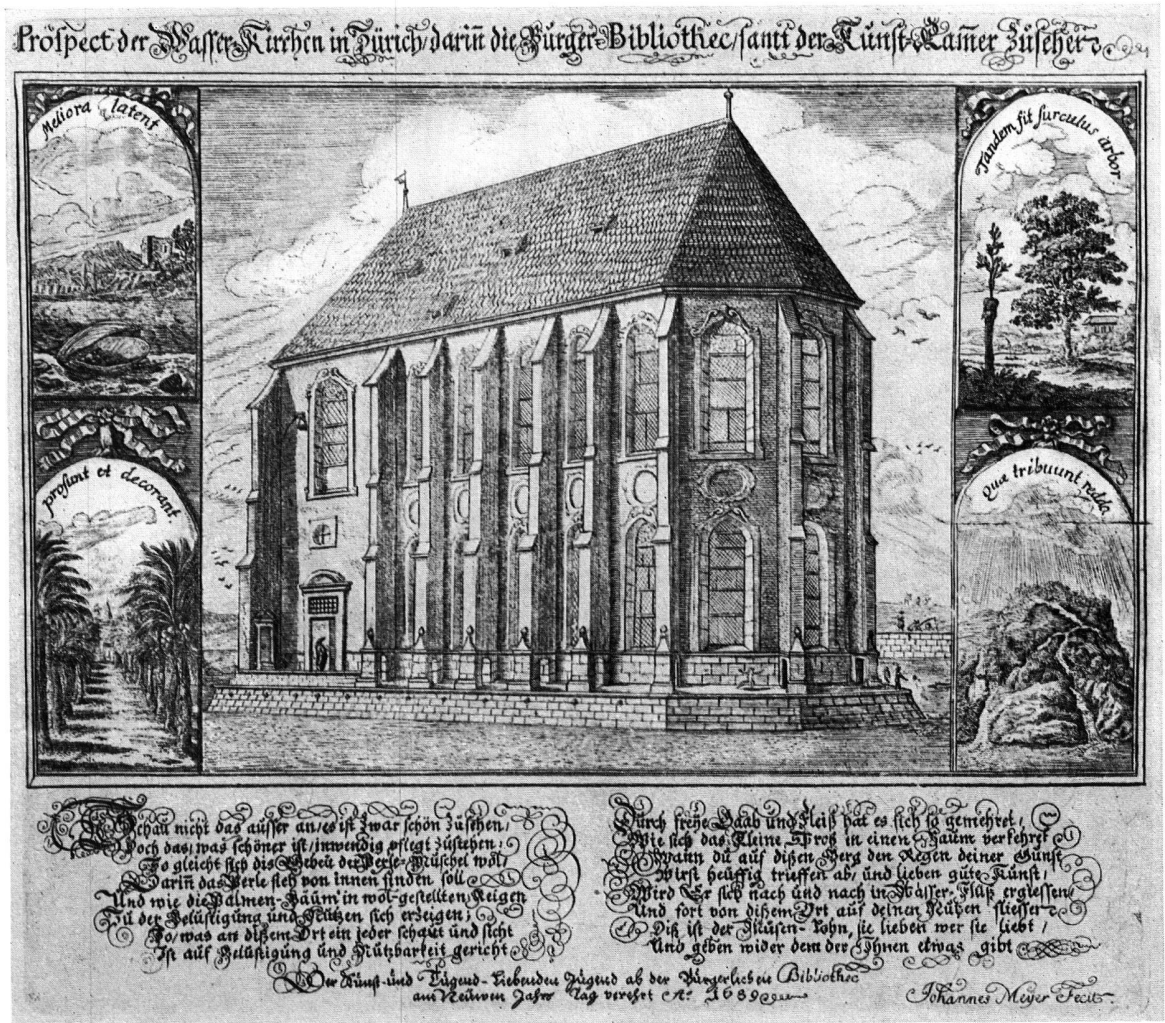 Prospect der Wasser-Kirchen in Zürich/ darin̄ die Bürger-Bibliothec/ samt der Kunst-Kam̄er Zusehen
Meliora latent
Tandem fit surculus arbor.
prosunt et decorant
Quæ tribuunt reddo
Schau nicht das ausser an/ es ist zwar schön zusehen/
Doch das/ was schöner ist/ inwendig pflegt zustehen:
So gleicht sich dis Gebeu der Perle-Muschel wol/
Darin̄ das Perle sich von innen finden soll
Und wie die Palmen-Bäum in wol-gestellten Reigen
Zu der Belustigung und Nutzen sich erzeigen;
So/ was an disem Ort ein jeder schaut und sicht
Ist auf Belustigung und Nutzbarkeit gericht
Durch freye Gaab und Fleiß hat es sich so gemehret/
Wie sich das kleine Sproß in einen Baum verkehret
Wann du auf disen Berg den Regen deiner Gunst
Wirst heuffig trieffen ab/ und lieben gute Kunst/
Wird Er sich nach und nach in Wasser-Flüß ergiessen/
Und fort von disem Ort auf deinen Nutzen fliessen
Diß ist der Musen-Lohn, sie lieben wer sie liebt/
Und geben wider dem der Ihnen etwas gibt
Der Kunst-und Tugend-Liebenden Jugend ab der Bürgerlichen Bibliothec
am Neuwen Jahrs Tag verehrt Aº. 1689
Johannes Meyer Fecit.